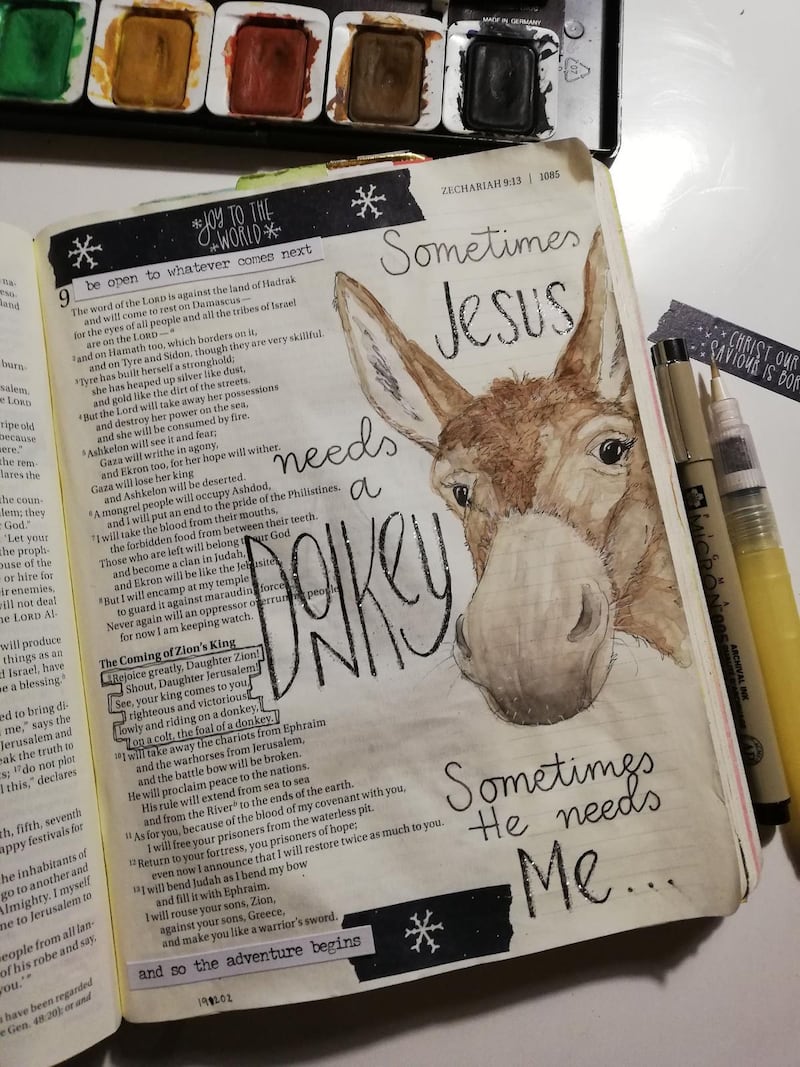 MADE IN GERMANY
07
na-
eso-
land
burn-
salem,
e LORD
ripe old
because
here."
the rem-
lares the
the coun-
lem; they
r God."
'Let your
the proph-
ouse of the
or hire for
ir enemies,
ill not deal
he LORD Al-
will produce
things as an
d Israel, have
be a blessing.
ed to bring di-
me," says the
Jerusalem and
eak the truth to
ts; 17 do not plot
l this," declares
th, fifth, seventh
appy festivals for
he inhabitants of
go to another and
Almighty. I myself
me to Jerusalem to
people from all lan-
of his robe and say,
you.'"
s have been regarded
e Gen. 48:20); or and
ZECHARIAH 9:13 | 1085
JOY TO THE
WORLD
be open to whatever comes next
9 The word of the LORD is against the land of Hadrak
and will come to rest on Damascus—
for the eyes of all people and all the tribes of Israel
are on the LORD— a
2 and on Hamath too, which borders on it,
and on Tyre and Sidon, though they are very skillful.
3 Tyre has built herself a stronghold;
she has heaped up silver like dust,
and gold like the dirt of the streets.
4 But the Lord will take away her possessions
and destroy her power on the sea,
and she will be consumed by fire.
5 Ashkelon will see it and fear;
Gaza will writhe in agony,
and Ekron too, for her hope will wither.
Gaza will lose her king
and Ashkelon will be deserted.
6 A mongrel people will occupy Ashdod,
and I will put an end to the pride of the Philistines.
7 I will take the blood from their mouths,
the forbidden food from between their teeth.
Those who are left will belong to our God
and become a clan in Judah,
and Ekron will be like the Jebusites.
8 But I will encamp at my temple
to guard it against marauding forces.
Never again will an oppressor overrun my people,
for now I am keeping watch.
The Coming of Zion's King
9 Rejoice greatly, Daughter Zion!
Shout, Daughter Jerusalem!
See, your king comes to you,
righteous and victorious,
lowly and riding on a donkey,
on a colt, the foal of a donkey.
10 I will take away the chariots from Ephraim
and the warhorses from Jerusalem,
and the battle bow will be broken.
He will proclaim peace to the nations.
His rule will extend from sea to sea
and from the River b to the ends of the earth.
11 As for you, because of the blood of my covenant with you,
I will free your prisoners from the waterless pit.
12 Return to your fortress, you prisoners of hope;
even now I announce that I will restore twice as much to you.
13 I will bend Judah as I bend my bow
and fill it with Ephraim.
I will rouse your sons, Zion,
against your sons, Greece,
and make you like a warrior's sword.
and so the adventure begins
Sometimes
Jesus
needs
a
DONKey
Sometimes
He needs
Me...
CHRIST OUR
SAVIOUS IS BOR
MICRON
ARCHIVAL INK